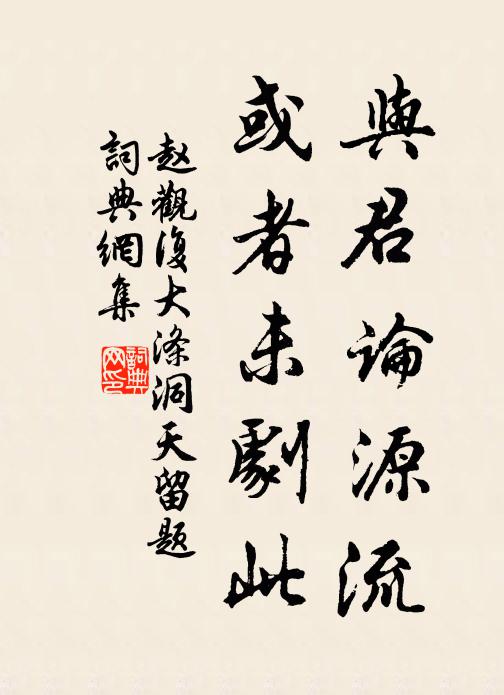 與君論源流
或者未劇此
赵觀復大滌洞天留题
詞典網集
詞典网印